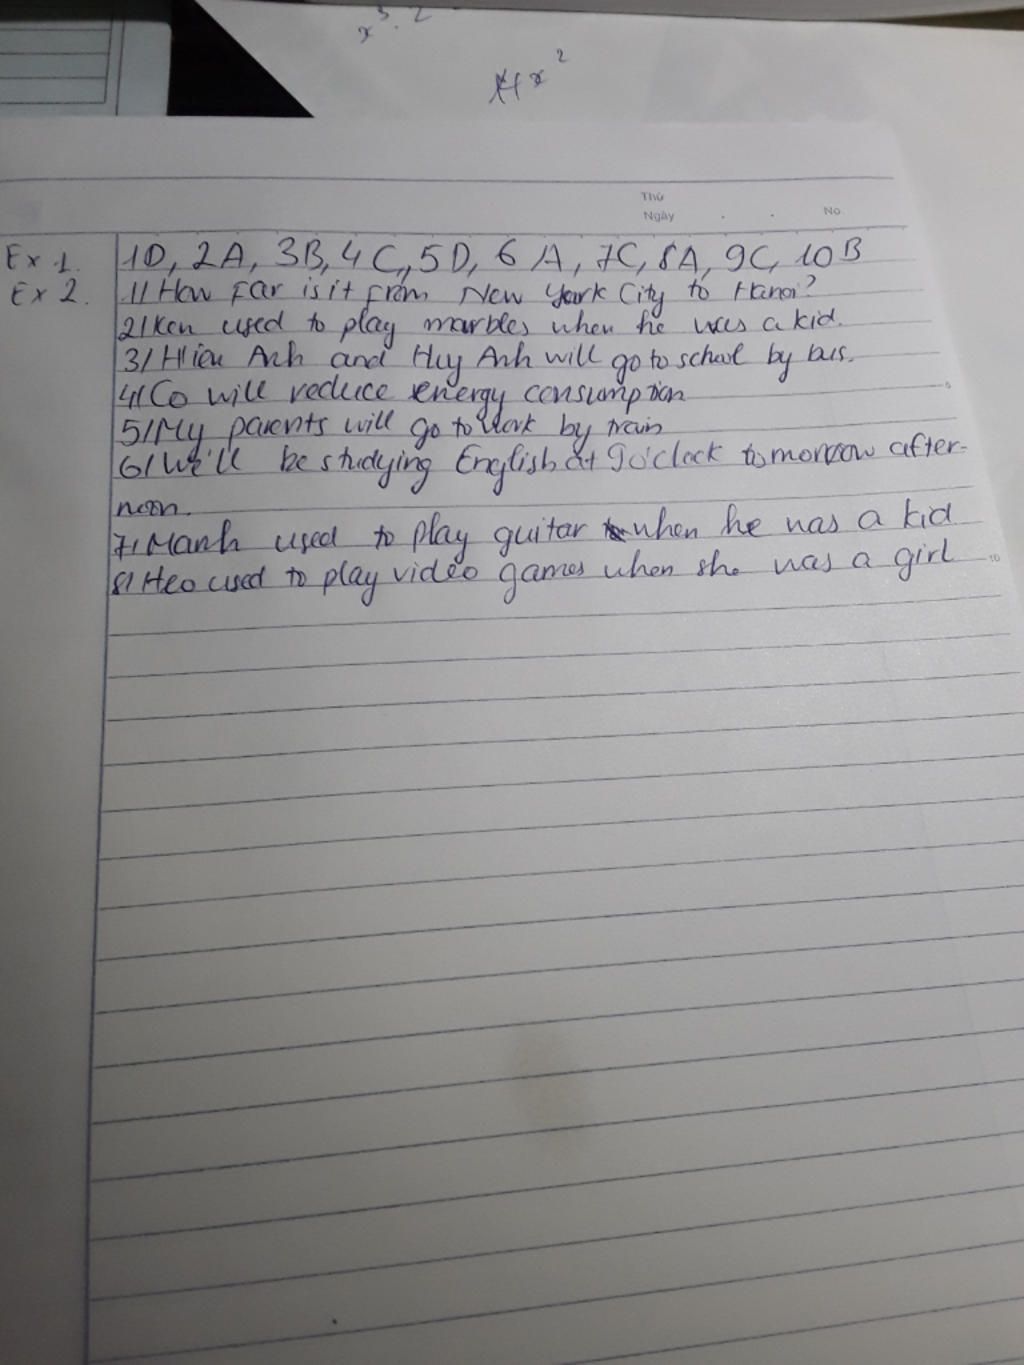 x³. 2
4x²
Thứ
Ngày . . No.
Ex 1. 1D, 2A, 3B, 4C, 5D, 6A, 7C, 8A, 9C, 10B
Ex 2. 1/ How far is it from New York City to Hanoi?
2/ Ken used to play marbles when he was a kid.
3/ Hieu Anh and Huy Anh will go to school by bus.
5
4/ Co will reduce energy consumption
5/ My parents will go to work by train
6/ We'll be studying English at 9 o'clock tomorrow after-
noon.
7/ Manh used to play guitar when he was a kid
8/ Heo used to play video games when she was a girl
10